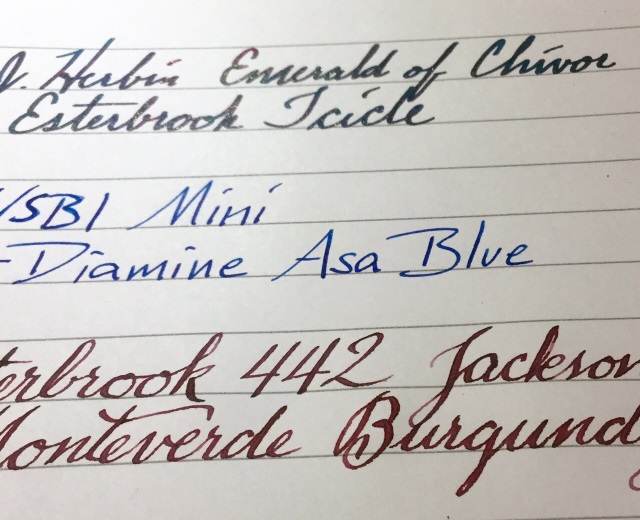 J. Herbin Emerald of Chivor
Esterbrook Icicle
VSBI Mini
-Diamine Asa Blue
terbrook 442 Jackson
Monteverde Burgundy